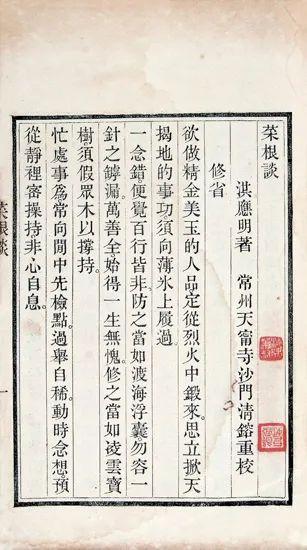 菜根談
洪應明著　常州天甯寺沙門清鎔重校
修省
欲做精金美玉的人品定從烈火中鍛來。思立掀天
揭地的事功須向薄氷上履過。
一念錯便覺百行皆非防之當如渡海浮囊勿容一
針之罅漏。萬善全始得一生無愧。修之當如凌雲寶
樹須假眾木以撐持。
忙處事爲常向閒中先檢點。過舉自稀。動時念想預
從靜裡密操持非心自息。
菜根談
一